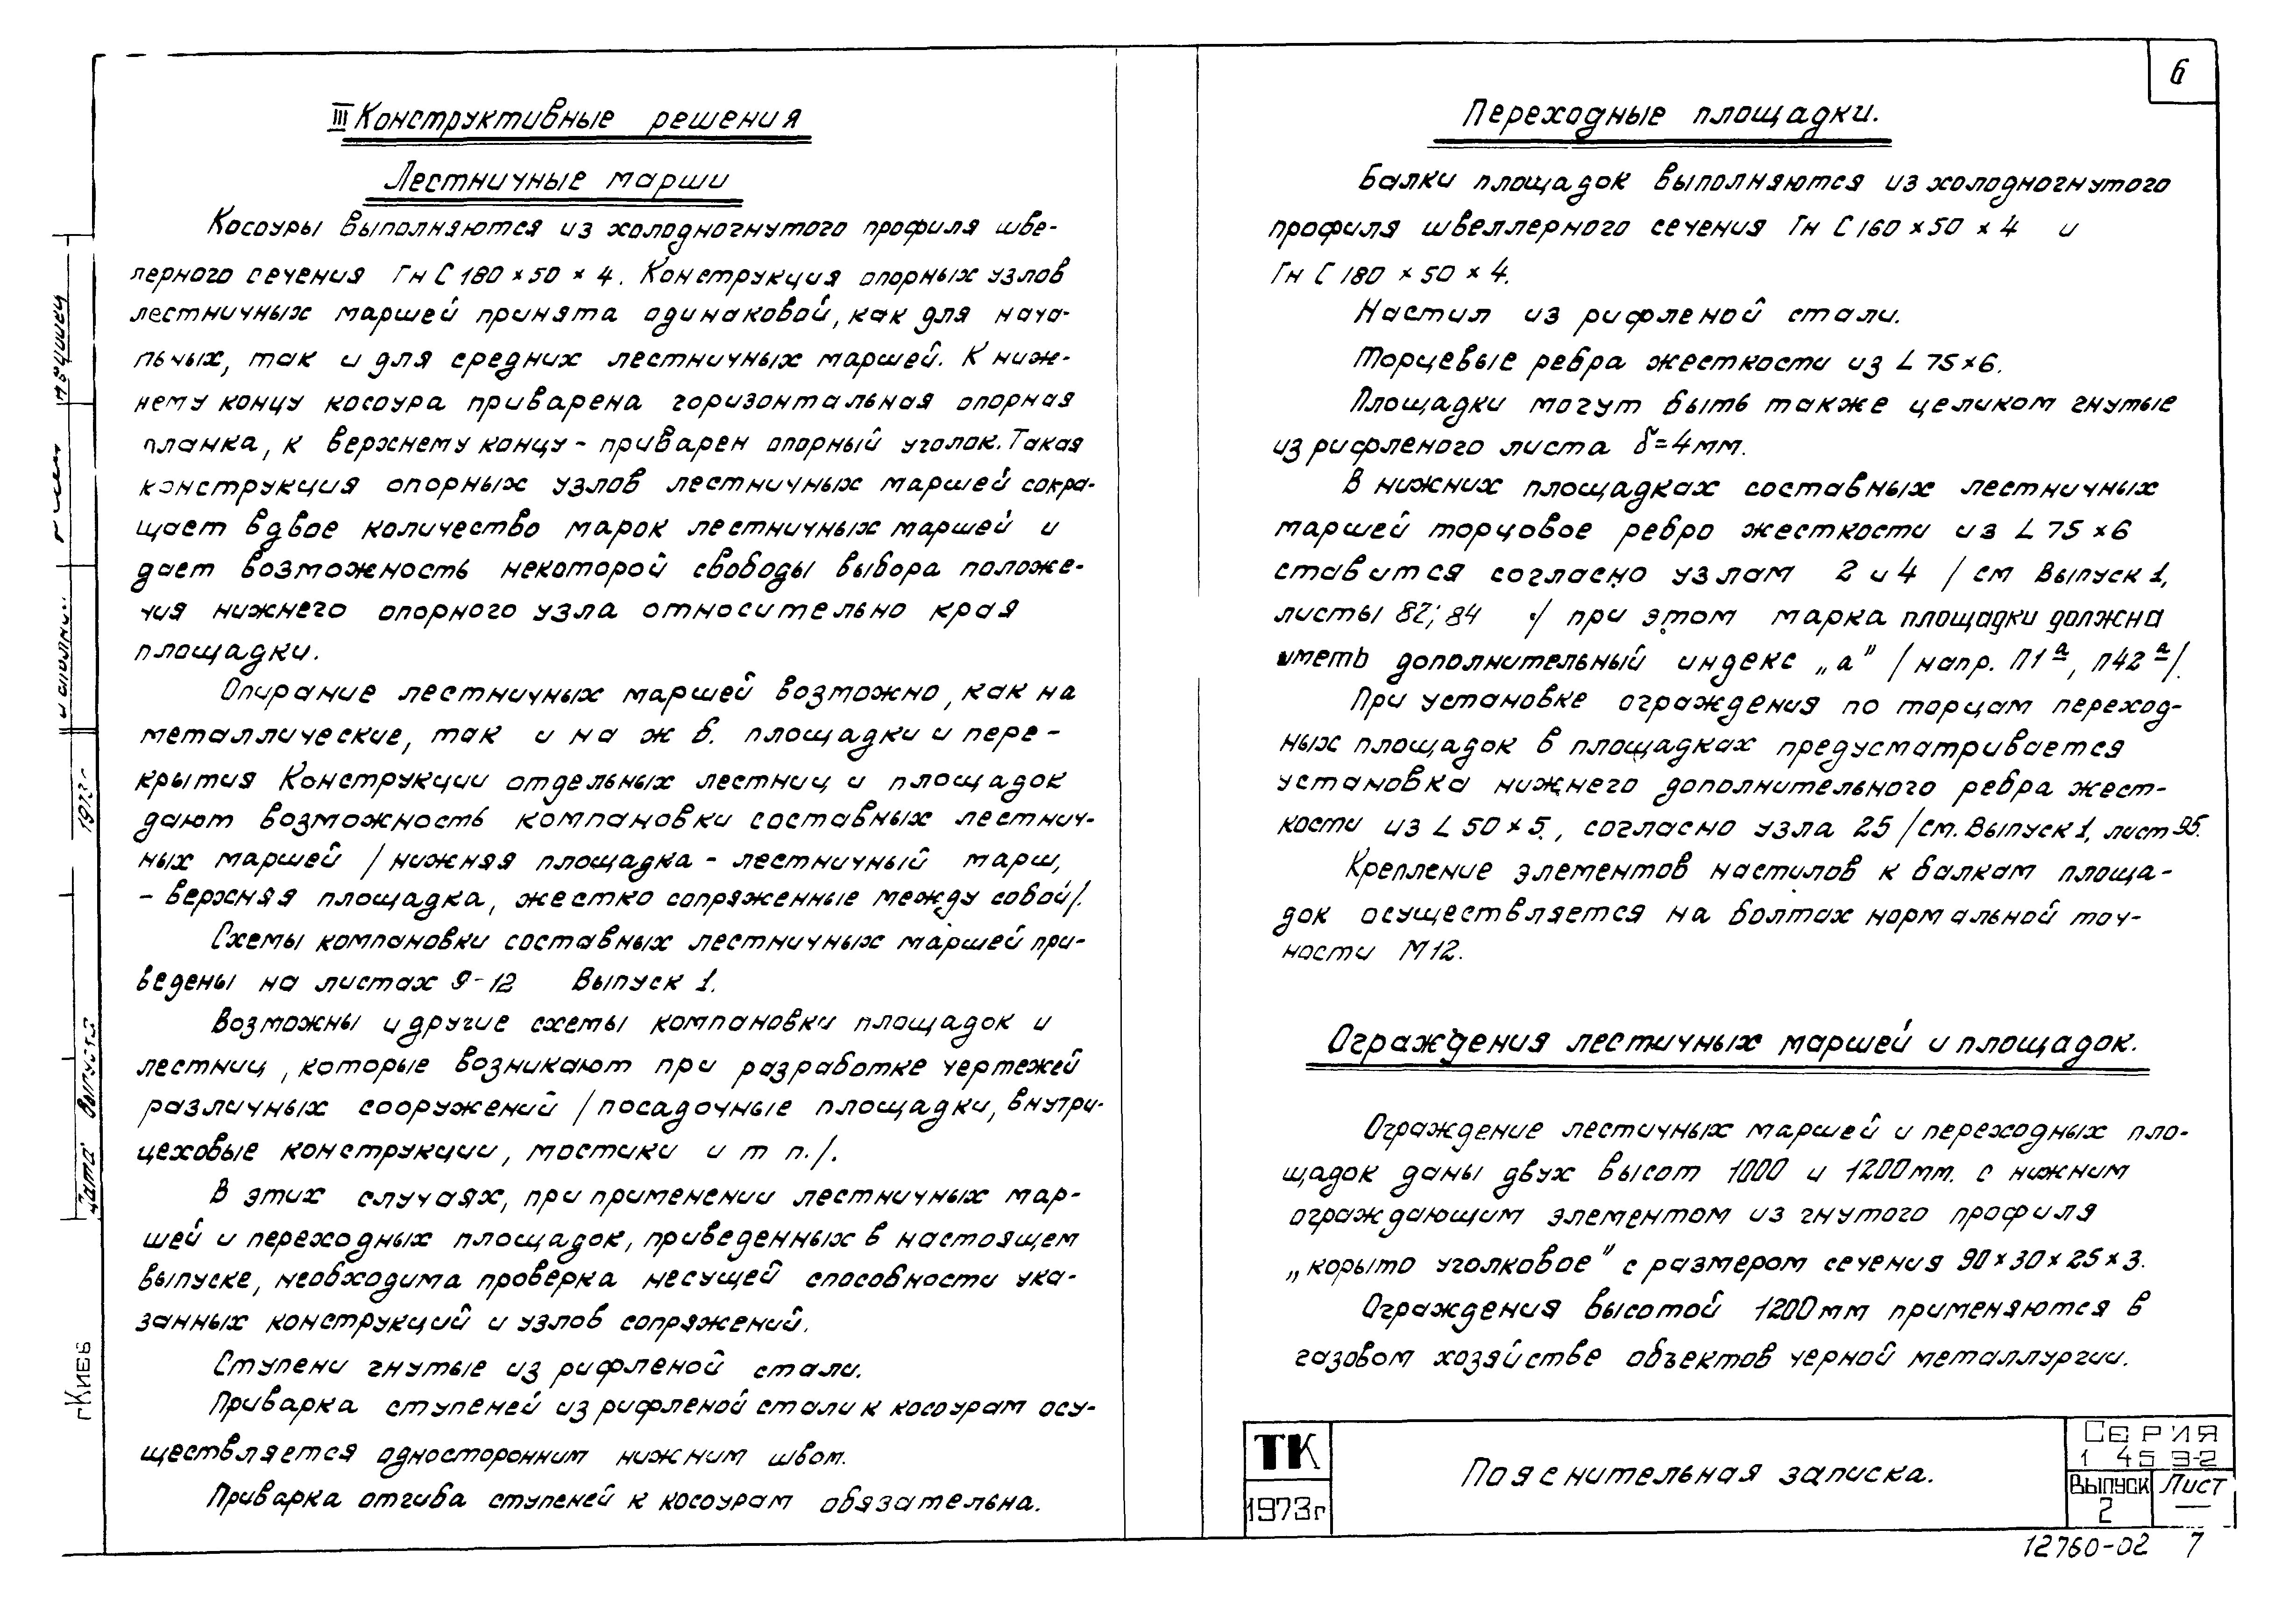 III Конструктивные решения
Лестничные марши
Косоуры выполняются из холодногнутого профиля шве-
лерного сечения Гн [ 180 × 50 × 4. Конструкция опорных узлов
лестничных маршей принята одинаковой, как для нача-
льных, так и для средних лестничных маршей. К ниж-
нему концу косоура приварена горизонтальная опорная
планка, к верхнему концу - приварен опорный уголок. Такая
конструкция опорных узлов лестничных маршей сокра-
щает вдвое количество марок лестничных маршей и
дает возможность некоторой свободы выбора положе-
ния нижнего опорного узла относительно края
площадки.
Опирание лестничных маршей возможно, как на
металлические, так и на ж б. площадки и пере-
крытия Конструкции отдельных лестниц и площадок
дают возможность компановки составных лестнич-
ных маршей /нижняя площадка - лестничный марш,
- верхняя площадка, жестко сопряженные между собой/.
Схемы компановки составных лестничных маршей при-
ведены на листах 9-12 Выпуск 1.
Возможны и другие схемы компановки площадок и
лестниц, которые возникают при разработке чертежей
различных сооружений /посадочные площадки, внутри-
цеховые конструкции, мостики и т п./.
В этих случаях, при применении лестничных мар-
шей и переходных площадок, приведенных в настоящем
выпуске, необходима проверка несущей способности ука-
занных конструкций и узлов сопряжений.
Ступени гнутые из рифленой стали.
Приварка ступеней из рифленой стали к косоурам осу-
ществляется односторонним нижним швом.
Приварка отгиба ступеней к косоурам обязательна.
6
Переходные площадки.
Балки площадок выполняются из холодногнутого
профиля швеллерного сечения Гн [ 160 × 50 × 4 и
Гн [ 180 × 50 × 4.
Настил из рифленой стали.
Торцевые ребра жесткости из L 75×6.
Площадки могут быть также целиком гнутые
из рифленого листа δ=4мм.
В нижних площадках составных лестничных
маршей торцовое ребро жесткости из L 75×6
ставится согласно узлам 2 и 4 / см Выпуск 1,
листы 82; 84 / при этом марка площадки должна
иметь дополнительный индекс „а" / напр. П1а, П42а/.
При установке ограждения по торцам переход-
ных площадок в площадках предусматривается
установка нижнего дополнительного ребра жест-
кости из L 50×5, согласно узла 25 /см. Выпуск 1, лист 95.
Крепление элементов настилов к балкам площа-
док осуществляется на болтах нормальной точ-
ности М12.
Ограждения лестичных маршей и площадок.
Ограждение лестичных маршей и переходных пло-
щадок даны двух высот 1000 и 1200мм. с нижним
ограждающим элементом из гнутого профиля
„корыто уголковое" с размером сечения 90×30×25×3.
Ограждения высотой 1200мм применяются в
газовом хозяйстве объектов черной металлургии.
ТК
1973г
Пояснительная записка.
Серия
1 45 9-2
Выпуск
2
Лист
—
12760-02 7
1973г
Дата выпуска
г Киев